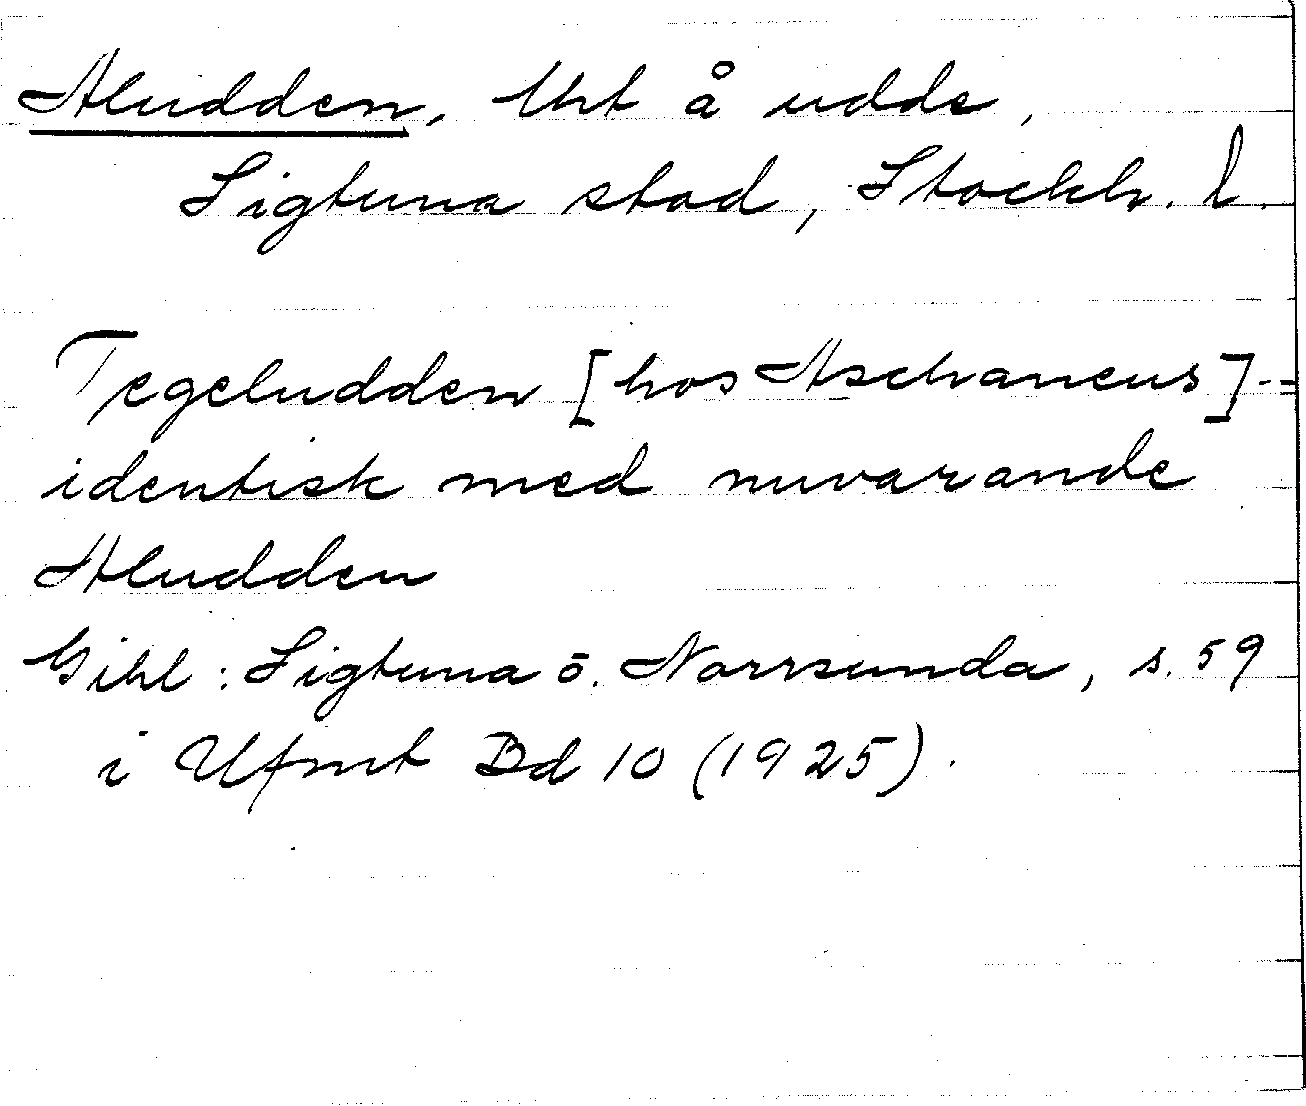 Aludden, Uht å udde,
Sigtuna stad, Stockh. l.
Tegeludden [hos Aschaneus] -=
identisk med nuvarande
Aludden
Gihl: Sigtuna o. Norrsunda, s. 59
i Ufmt Bd 10 (1925).